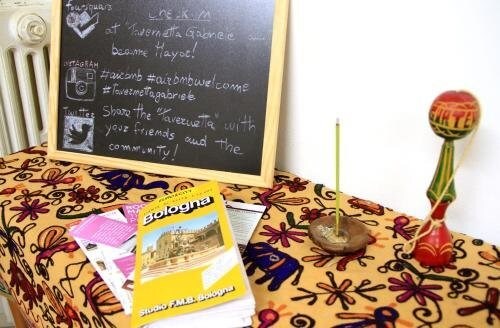 foursquare
check in
at "Tavernetta Gabriele
become Mayor!
INSTAGRAM
#airbnb #airbnbwelcome
#Tavernettagabriele
Twitter
Share the "Tavernetta" with
your friends and the
community!
Bologna
Studio F.M.B. Bologna